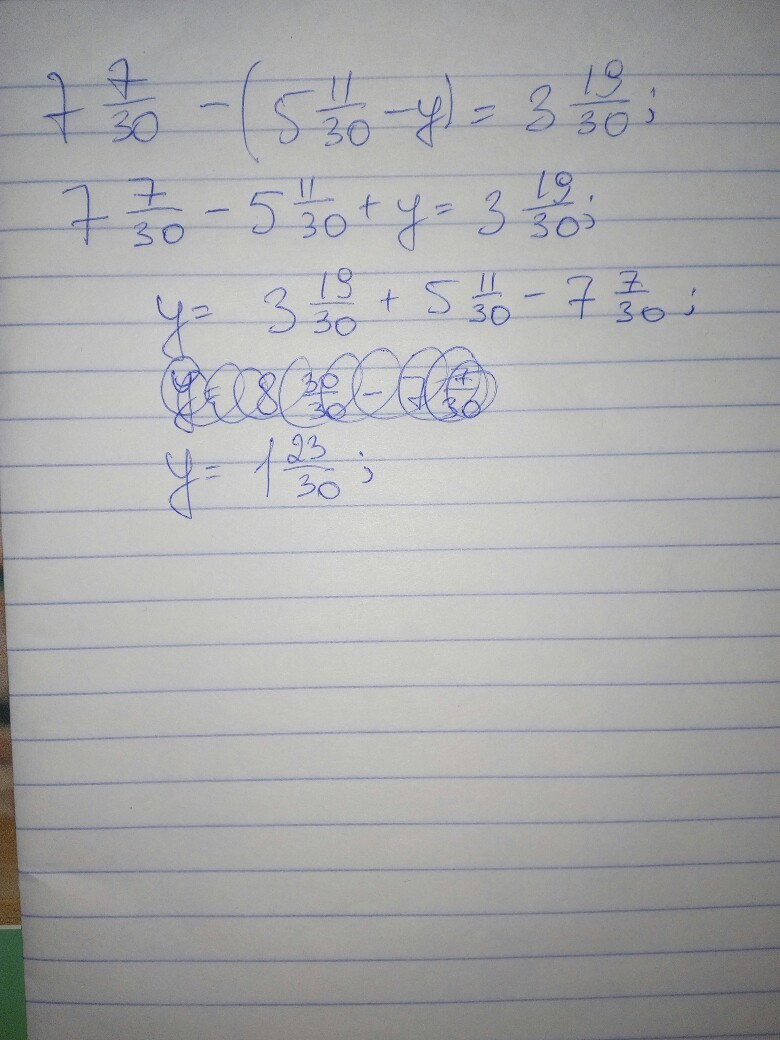 7 7/30 - (5 11/30 - y) = 3 19/30;
7 7/30 - 5 11/30 + y = 3 19/30;
y = 3 19/30 + 5 11/30 - 7 7/30;
y = 8 30/30 - 7 7/30
y = 1 23/30;